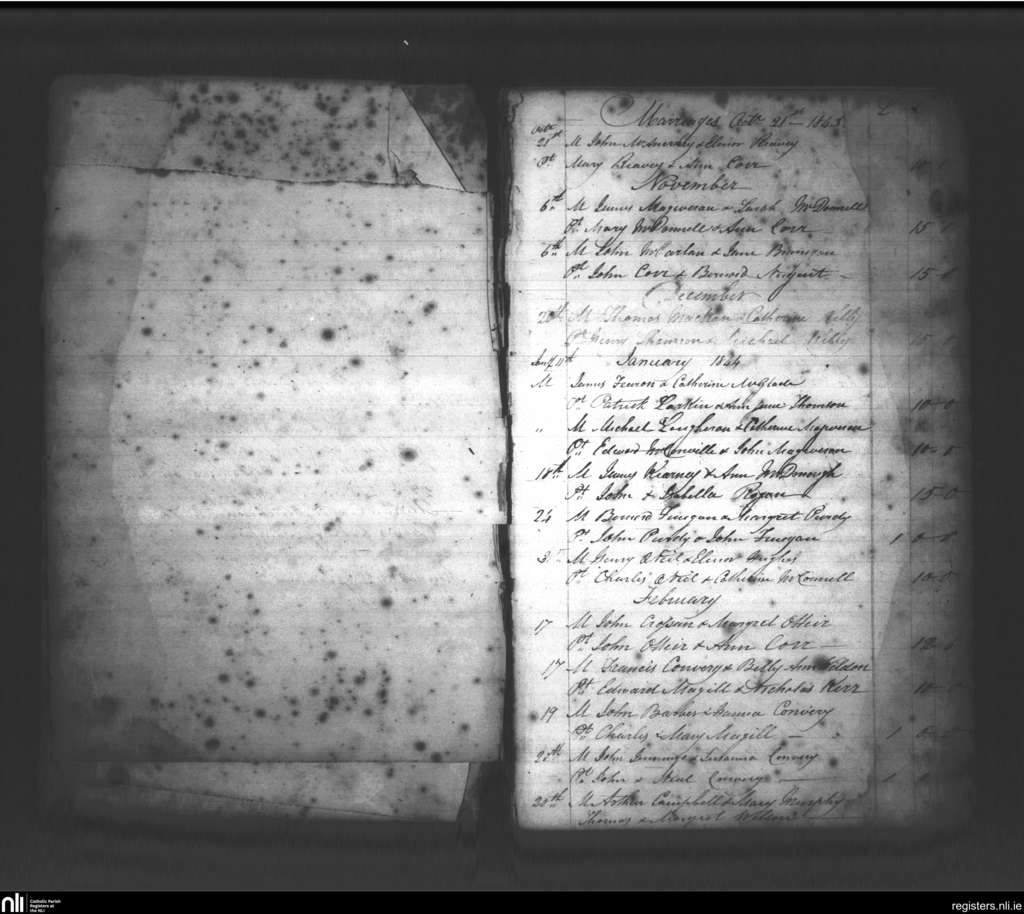 Marriages Octr 21st 1843
2
Octr
21st M John McInerney & Elenor Heavey
Pt Mary Heavey & Ann Corr
November
6th M James Magiveran & Sarah McDonnell
Pt Mary McDonnell & Ann Corr 15 0
6th M John McCartan & Jane
Pt John Corr & Bernard Nugent 15 0
December
28th M Thomas & Catherine Kelly
Pt Henry & Michael Kelly 15 0
Jany 11th January 1844
M James Fearon & Catherine McGlade
Pt Patrick Larkin & Ann Jane Thomson 10 0
" M Michael Lougheran & Catherine Magiveran
Pt Edward McConville & John Magiveran 10 0
18th M James Kearney & Ann McDonogh
Pt John & Isabella Rogan 15 0
24 M Bernard Finegan & Margret Purdy
Pt John Purdy & John Finegan 1 0 0
M Henry O Neil & Elinor Hughes
Pt Charles O Neil & Catherine McConnell 10 0
February
17 M John Crossan & Margret Otteir
Pt John Otteir & Ann Corr 12 6
17 M Francis Convery & Betty Ann Weldon
Pt Edward Magill & Nicholas Kerr 10 0
19 M John Barber & Hanna Convery
Pt Charles & Mary Magill 1
20th M John Jennings & Susanna Convery
Pt John & Neal Convery 1
20th M Arthur Campbell & Mary Murphy
Thomas & Margret Wilson
nli
Catholic Parish
Registers at
the NLI
registers.nli.ie